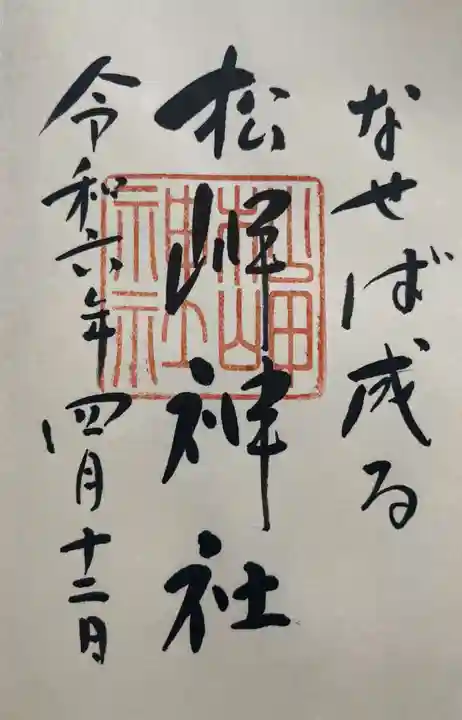 なせば成る
松岬神社
松岬
神社
令和六年四月十二日